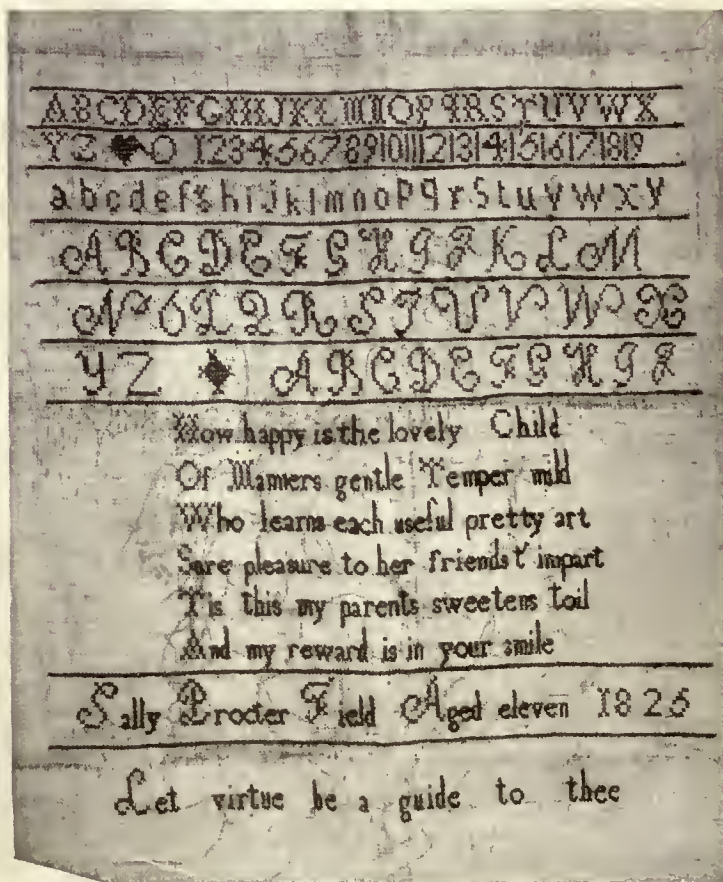 ABCDEFGHIJKLMNOPQRSTUVWX
YZ O 12345678910111213141516171819
abcdefghijklmnopqrstuvwxy
ABCDEFGHIJKLM
NOPQRSTUVWX
YZ ABCDEFGHIJ
How happy is the lovely Child
Of Manners gentle Temper mild
Who learns each useful pretty art
Sure pleasure to her friends t' impart
Tis this my parents sweetens toil
And my reward is in your smile
Sally Procter Field Aged eleven 1826
Let virtue be a guide to thee